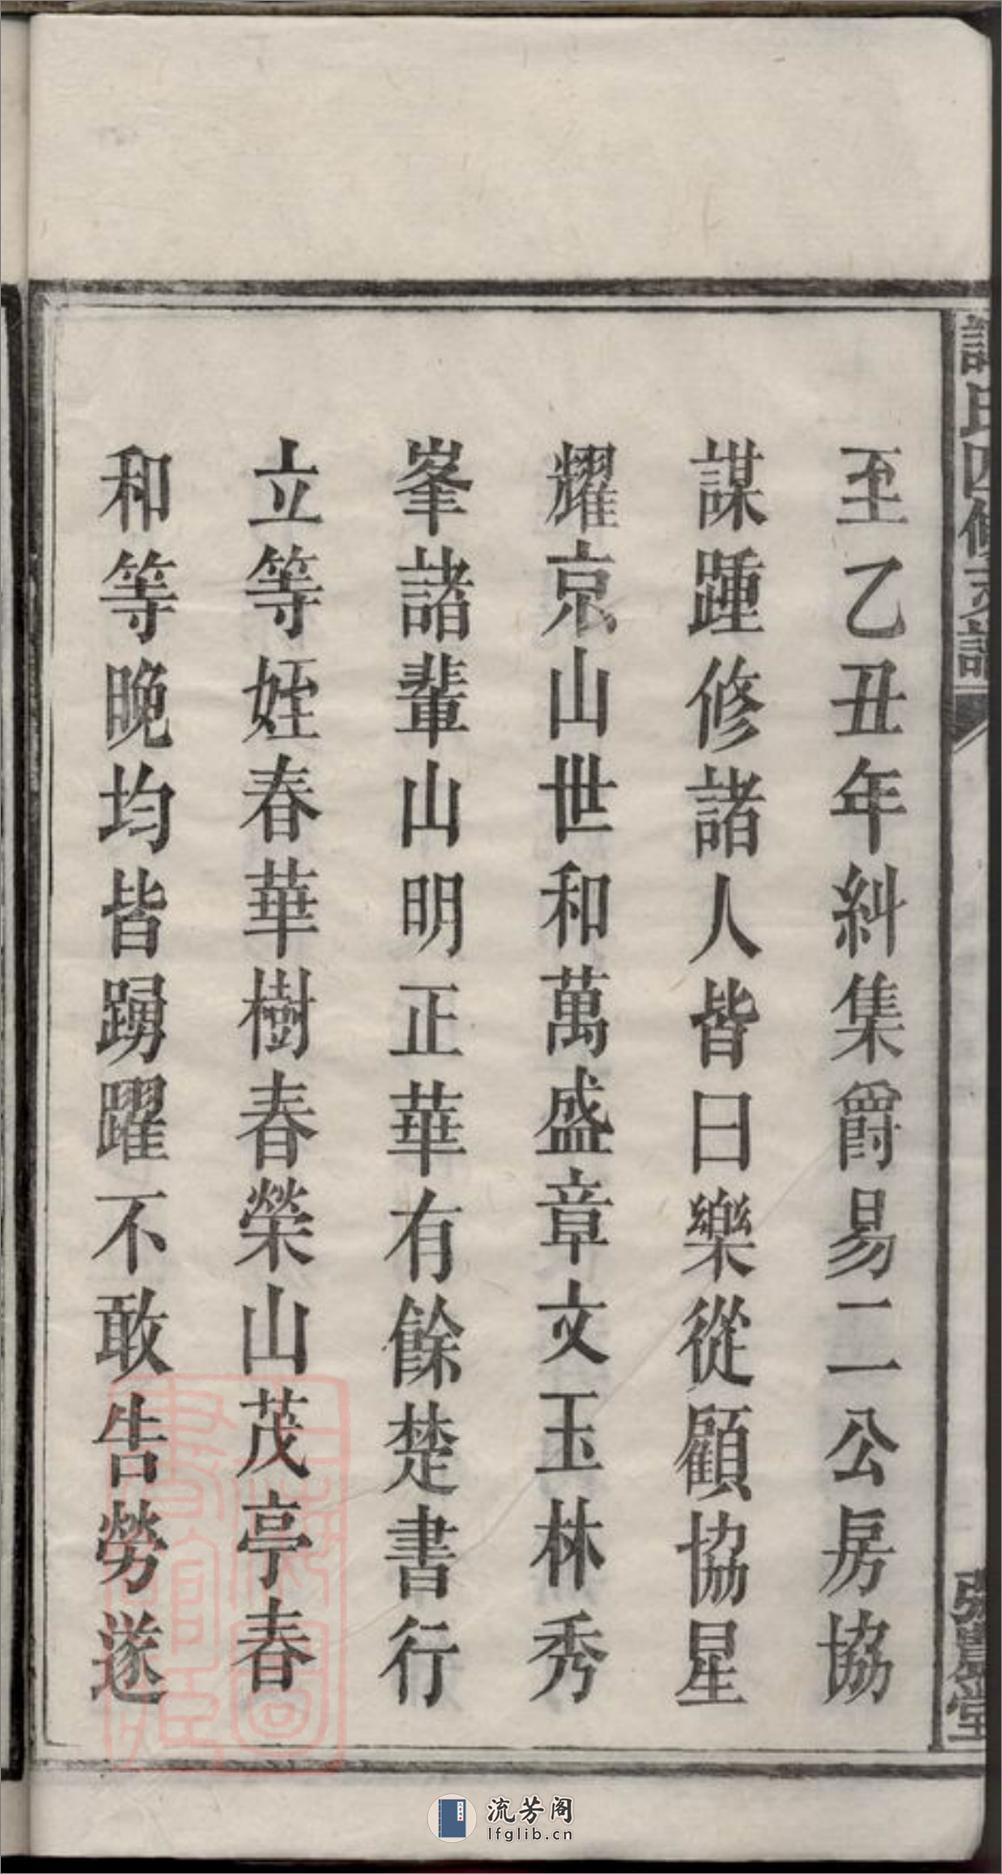 至乙丑年糾集爵易二公房協
謀踵修諸人皆曰樂從顧協星
耀京山世和萬盛章文玉林秀
峯諸輩山明正華有餘楚書行
立等姪春華樹春榮山茂亭春
和等晚均皆踴躍不敢告勞遂
氏四修支譜
堂
流芳阁
lfglib.cn